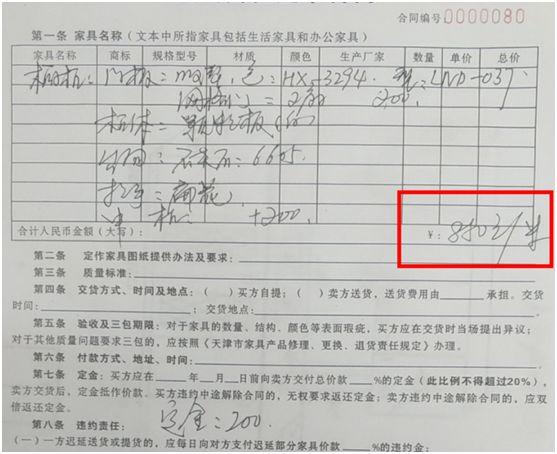 合同编号:0000080
第一条 家具名称(文本中所指家具包括生活家具和办公家具)
家具名称 商标 规格型号 材质 颜色 生产厂家 数量 单价 总价
门板: 色:HX-3294. LND-037
200
柜体:颗粒板
台面:石英石:6605
拉手:
+200
合计人民币金额(大写): ¥:850元/米
第二条 定作家具图纸提供办法及要求:
第三条 质量标准:
第四条 交货方式、时间及地点:( )买方自提;( )卖方送货,送货费用由 承担。交货
时间: ;交货地点:
第五条 验收及三包期限:对于家具的数量、结构、颜色等表面瑕疵,买方应在交货时当场提出异议;
对于其他质量问题要求三包的,应按照《天津市家具产品修理、更换、退货责任规定》办理。
第六条 付款方式、地址、时间:
第七条 定金:买方应在 年 月 日前向卖方交付总价款 %的定金(此比例不得超过20%),
卖方交货后,定金抵作价款。买方违约中途解除合同的,无权要求返还定金;卖方违约中途解除合同的,应双
倍返还定金。
定金:200.
第八条 违约责任:
(一)一方迟延送货或提货的,应每日向对方支付迟延部分家具价款 %的违约金;